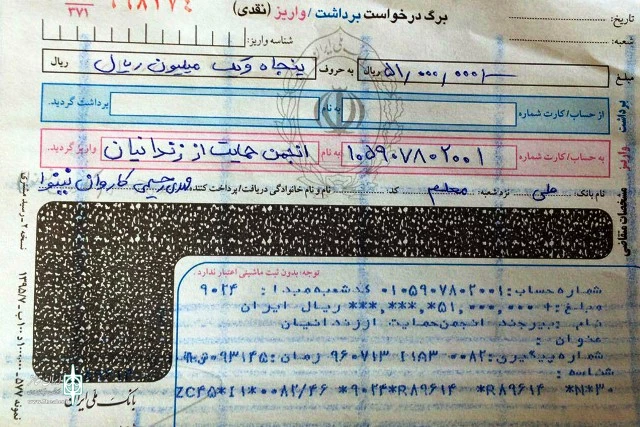 برگ درخواست برداشت / واریز (نقدی)
تاریخ:
۳۷۱
شعبه:
شناسه واریز:
مبلغ ۵۱,۰۰۰,۰۰۰/- ریال به حروف پنجاه ویک میلیون ریال ریال
از حساب/ کارت شماره به نام برداشت گردید.
به حساب/ کارت شماره ۰۱۰۵۹۰۷۸۰۲۰۰۱ به نام انجمن حمایت از زندانیان واریز گردید.
نام بانک: ملی نزد شعبه: معلم کد: نام و نام خانوادگی دریافت/ پرداخت کننده: کاروان نینوا
برداشت
واریز
مشخصات متقاضی
توجه: بدون ثبت ماشینی اعتبار ندارد.
شماره حساب: ۰۱۰۵۹۰۷۸۰۲۰۰۱ کدشعبه مبدا: ۹۰۲۴
مبلغ: +۵۱,۰۰۰,۰۰۰*,***,*** ریال ایران
نام: بیرجند انجمن حمایت اززندانیان
عنوان:
شماره پیگیری: ۰۰۸۲ ۱۱۸۳ ۹۶۰۷۱۳ زمان: ۰۹۳۱۴۵
شناسه:
ZC۴۵*I۱*۰۰۸۲/۴۶ *۹۰۲۴*R۸۹۶۱۴ *R۸۹۶۱۴ *N*۳۰
بانک ملی ایران
نسخه ۲ - رسید مشتری
نمونه ۵۷۷